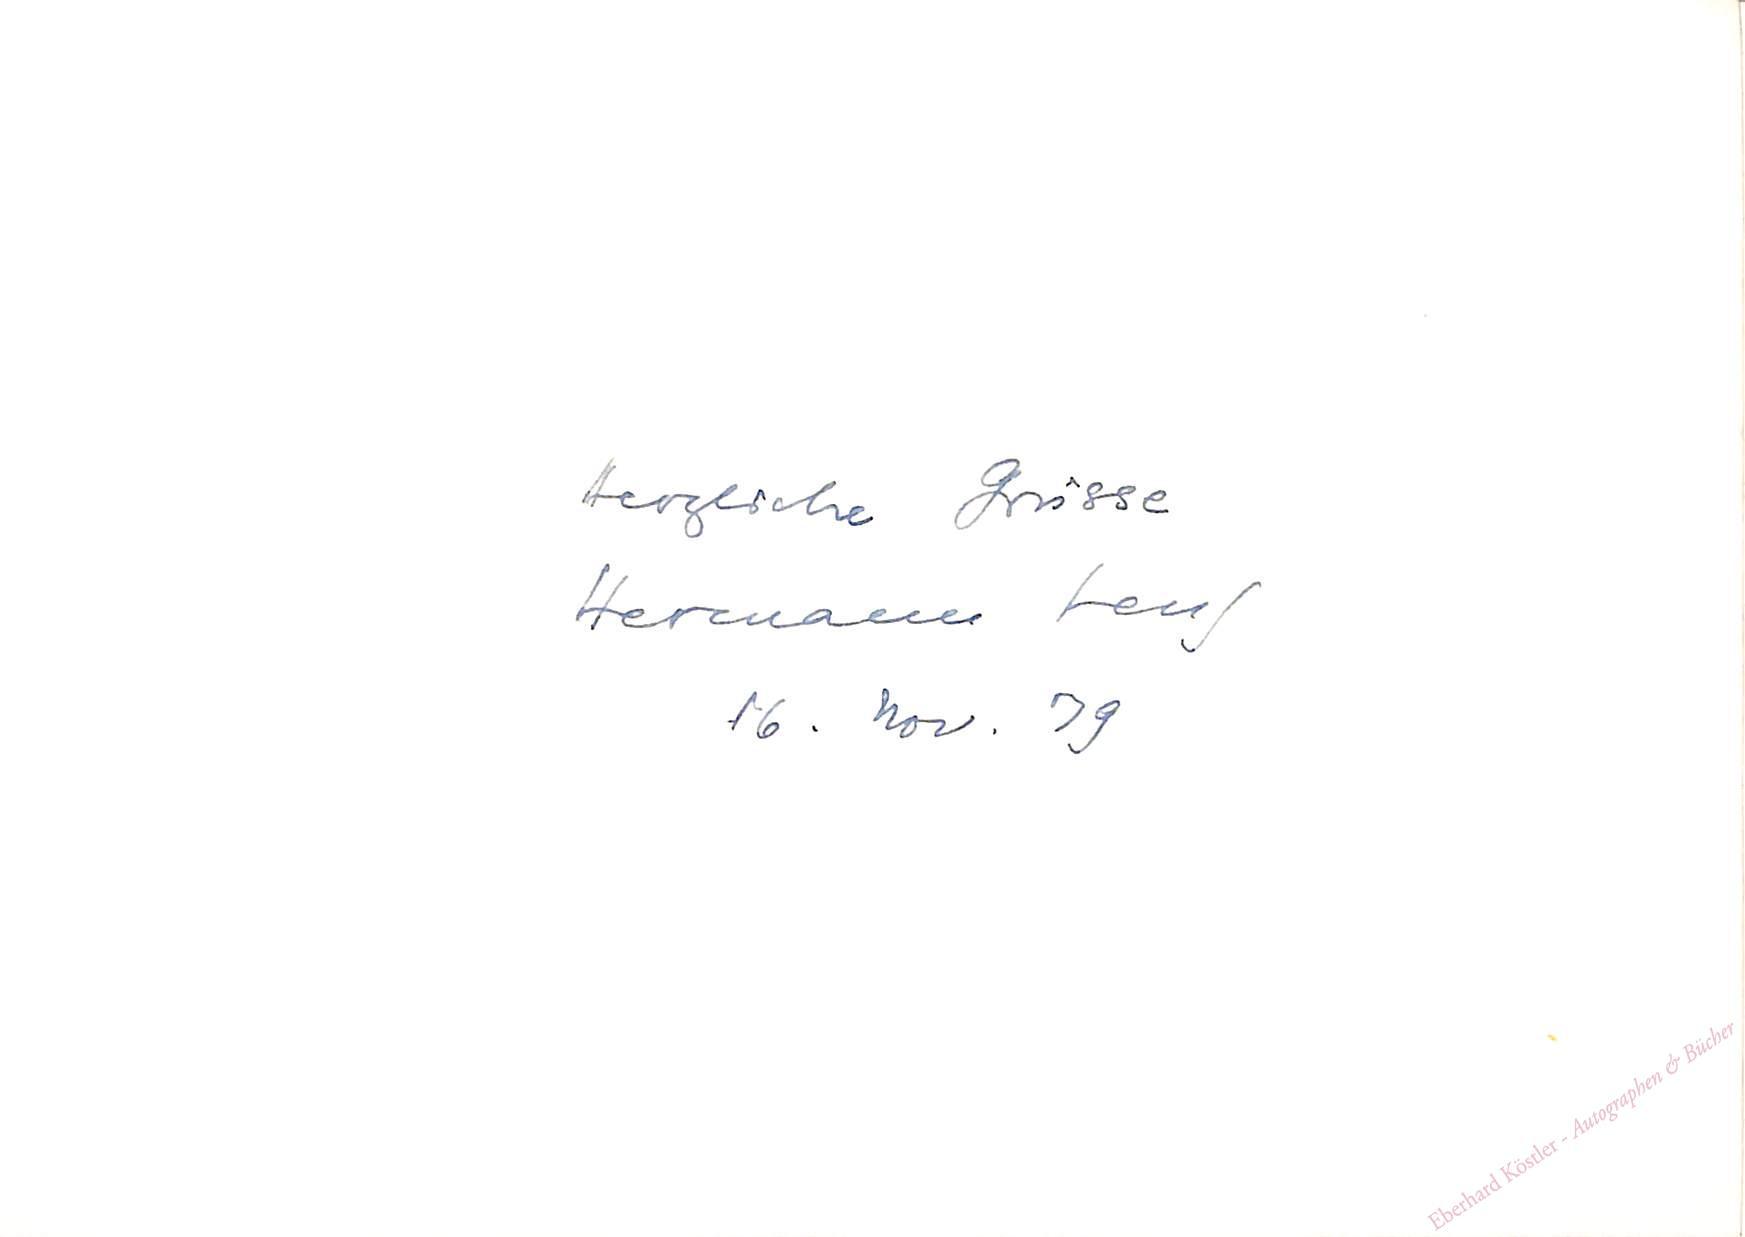 Herzliche Grüsse
Hermann Lenz
16. Nov. 79
Eberhard Köstler - Autographen & Bücher